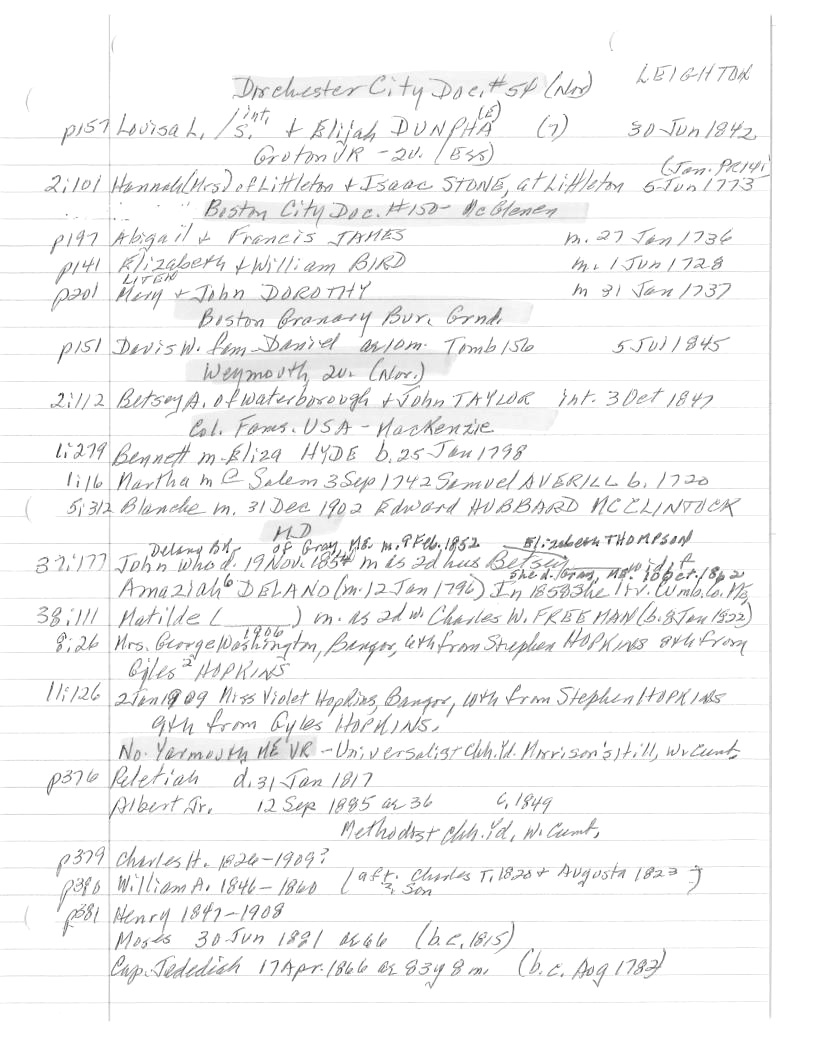 LEIGHTON
Dorchester City Doc. #54 (Nor)
p157 Louisa L. / int. S. + Elijah DUNPHA(E) (7) 30 Jun 1842
Groton VR - 2v. (Ess)
2:101 Hannah (Mrs) of Littleton + Isaac STONE, at Littleton (Jan. PR141) 5 Jun 1773
Boston City Doc. #150 - McGlenen
p197 Abigail + Francis JAMES m. 27 Jan 1736
p141 Elizabeth + William BIRD m. 1 Jun 1728
LITEN
p201 Mary + John DOROTHY m 31 Jan 1737
Boston Granary Bur. Grnd.
p151 Davis W. fam Daniel ae 10m. Tomb 156 5 Jul 1845
Weymouth, 2v. (Nor.)
2:112 Betsey A. of Waterborough + John TAYLOR int. 3 Oct 1847
Col. Fams. USA - MacKenzie
1:279 Bennett m. Eliza HYDE b. 25 Jan 1798
1:16 Martha m @ Salem 3 Sep 1742 Samuel AVERILL b. 1720
5:312 Blanche m. 31 Dec 1902 Edward HUBBARD MCCLINTOCK
MD
Delano BK of Gray, ME. m. 9 Feb. 1852 Elizabeth THOMPSON
37:177 John who d. 19 Nov. 1854 m as 2d hus Betsey wid. of
she d. Gray, ME. 10 Oct. 1862
Amaziah⁶ DELANO (m. 12 Jan 1796) In 1858 she liv. Cumb. Co. ME
38:111 Matilde ( ______ ) m. as 2d w. Charles W. FREEMAN (b. 8 Jan 1822)
1906
8:26 Mrs. George Washington, Bangor, 6th from Stephen HOPKINS 8th from
Giles² HOPKINS
11:126 2 Jan 1909 Miss Violet Hopkins, Bangor, 10th from Stephen HOPKINS
9th from Gyles HOPKINS.
No. Yarmouth ME VR - Universalist Chh. Yd. Morrison's Hill, W. Cumb.
p376 Peletiah d. 31 Jan 1817
Albert Jr. 12 Sep 1885 ae 36 c. 1849
Methodist Chh. Yd, W. Cumb.
p379 Charles H. 1826-1909?
p380 William A. 1846-1860 (aft. Charles T. 1820 + Augusta 1823
?, son
p381 Henry 1847-1908
Moses 30 Jun 1881 ae 66 (b.c. 1815)
Cap. Jedediah 17 Apr. 1866 ae 83y 8m. (b.c. Aug 1782)